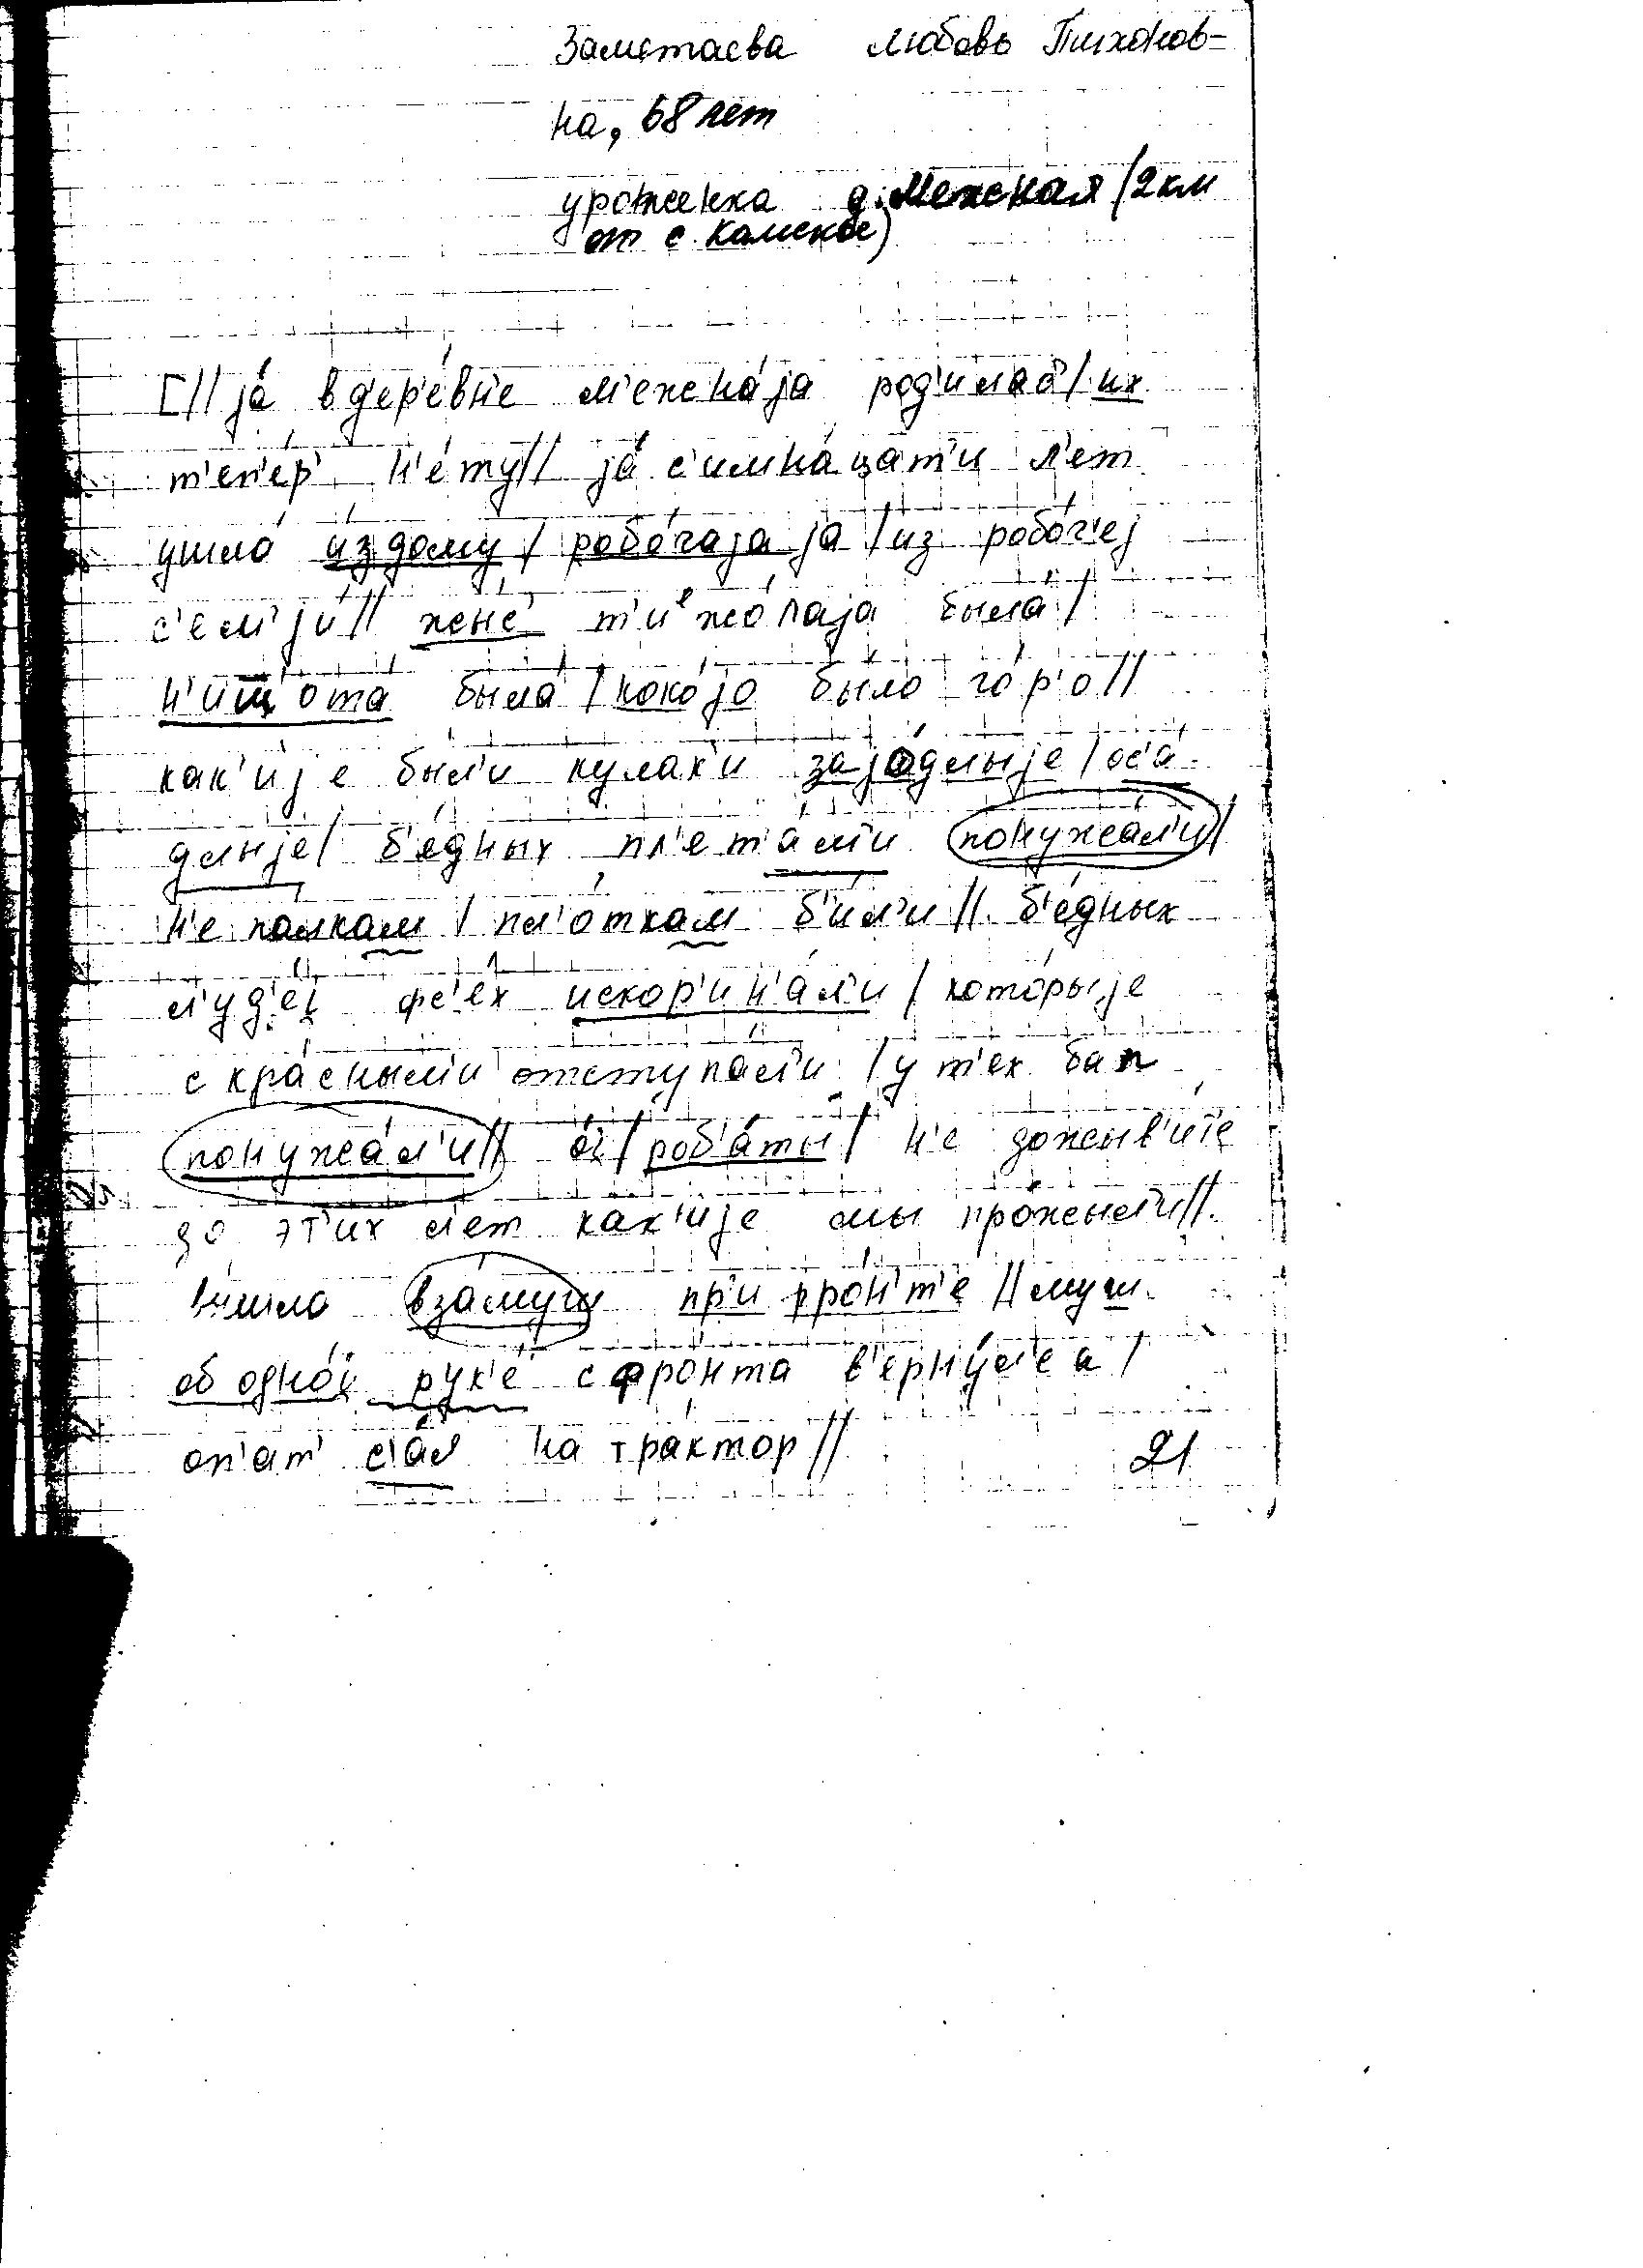 Заметаева Любовь Тихонов-
на, 68 лет
уроженка д. Межская (2км
от с. Каменное)
[// jа́ вд'ер'е́вн'е м'ежска́jа род'илас'/ их
т'еп'е́р' н'е́ту// jа́ с'имна́цат'и л'ет
ушла́ и́здому / робо́чаjа jа / из робо́ч'еj
с'ем'jи́// жене́ т'иᵉжо́лаjа была́/
н'ищ'ота́ была́ / како́jо было го́р'о//
как'иjе был'и кулак'и́ заjа́длыjе / ос'а́-
длыjе/ б'е́дных пл'ет'а́м'и понужа́л'и/
н'е палкам / пл'о́ткам б'и́л'и// б'е́дных
л'уд'е́į фс'ех искор'ин'а́л'и / кото́рыjе
с кра́сным'и отступа́л'и / у т'ех бап
понужа́л'и// о́į / роб'а́ты / н'е дожыв'ит'е
до эт'их л'ет как'иjе мы про́жыл'и//
вы́шла вза́муш пр'и фро́н'т'е // муш
об одно́į рук'е́ с фро́нта в'ерну́лс'а /
оп'ат' с'ал на тра́ктор//
21